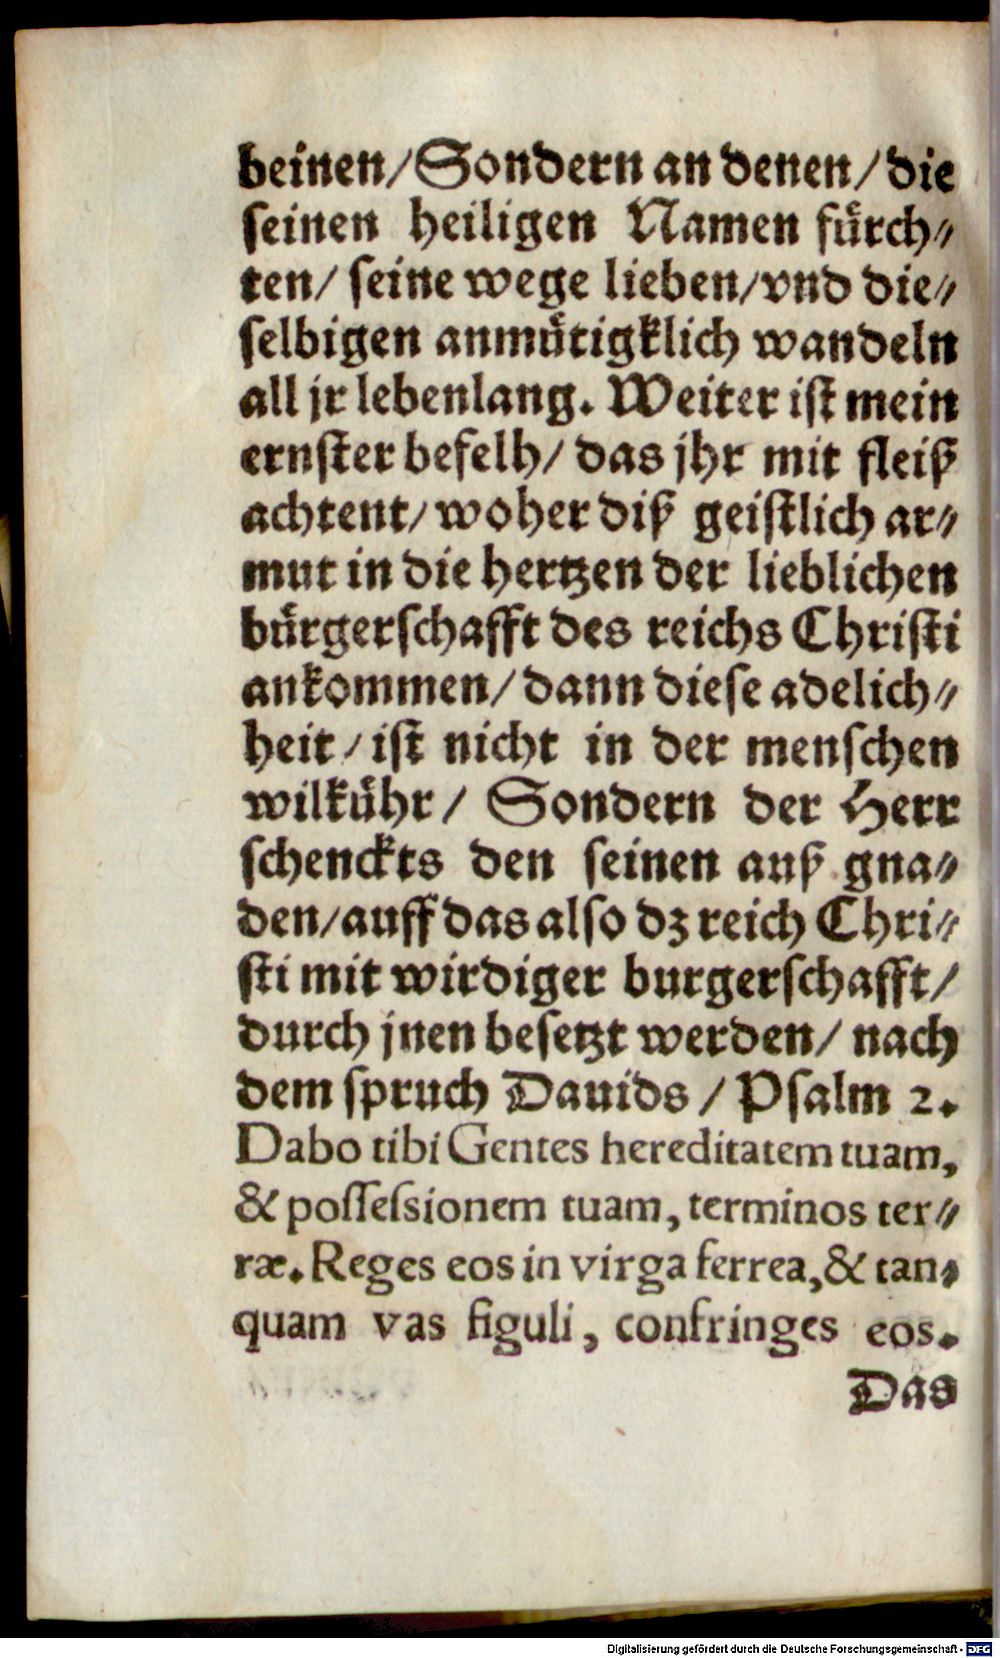 beinen/Sondern an denen/die
seinen heiligen Namen fürch⸗
ten/ seine wege lieben/vnd die⸗
selbigen anmütigklich wandeln
all jr lebenlang. Weiter ist mein
ernster befelh/ das jhr mit fleiß
achtent/ woher diß geistlich ar⸗
mut in die hertzen der lieblichen
bürgerschafft des reichs Christi
ankommen/ dann diese adelich⸗
heit/ ist nicht in der menschen
wilkühr/ Sondern der Herr
schenckts den seinen auß gna⸗
den/auff das also dz reich Chri⸗
sti mit wirdiger burgerschafft/
durch jnen besetzt werden/ nach
dem spruch Dauids / Psalm 2.
Dabo tibi Gentes hereditatem tuam,
& possessionem tuam, terminos ter⸗
ræ. Reges eos in virga ferrea, & tan⸗
quam vas figuli, confringes eos.
Das
Digitalisierung gefördert durch die Deutsche Forschungsgemeinschaft - DFG